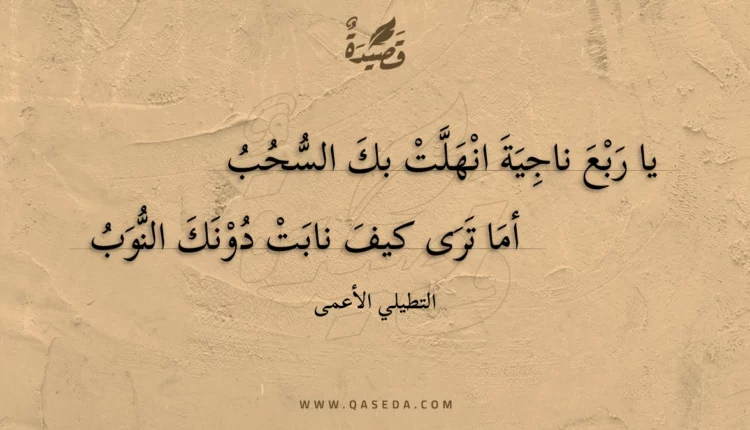 قَصِيْدَةٌ
يا رَبْعَ ناجِيَةَ انْهَلَّتْ بكَ السُّحُبُ
أمَا تَرَى كيفَ نابَتْ دُوْنَكَ النُّوَبُ
التطيلي الأعمى
WWW.QASEDA.COM